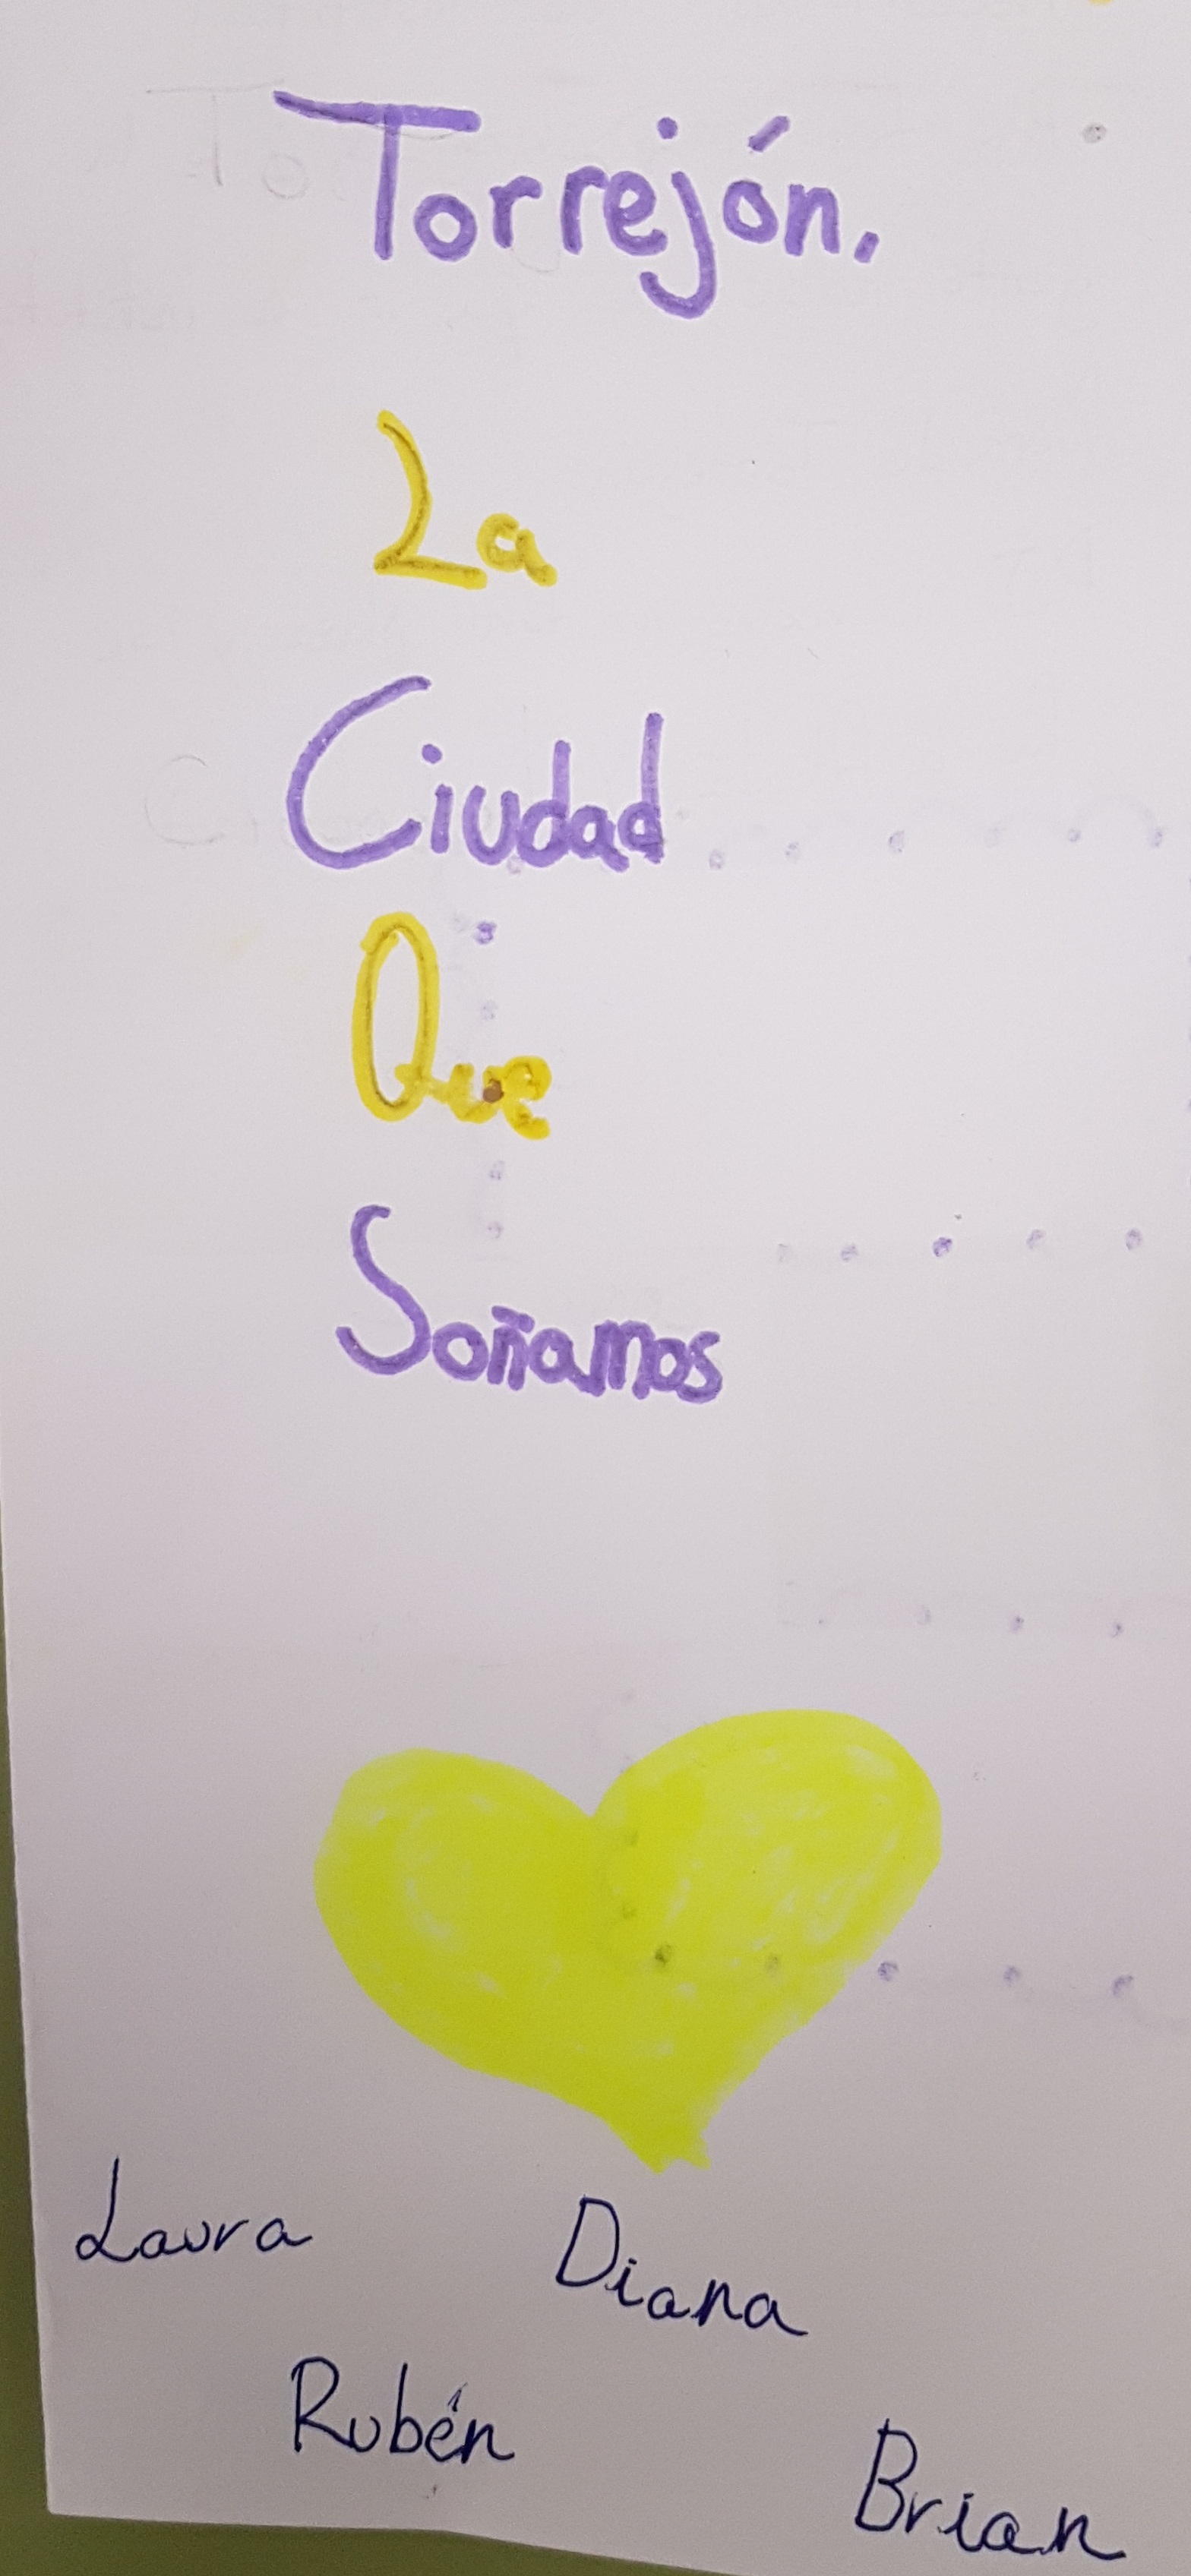 Torrejón.
La
Ciudad
Que
Soñamos
Laura
Diana
Rubén
Brian